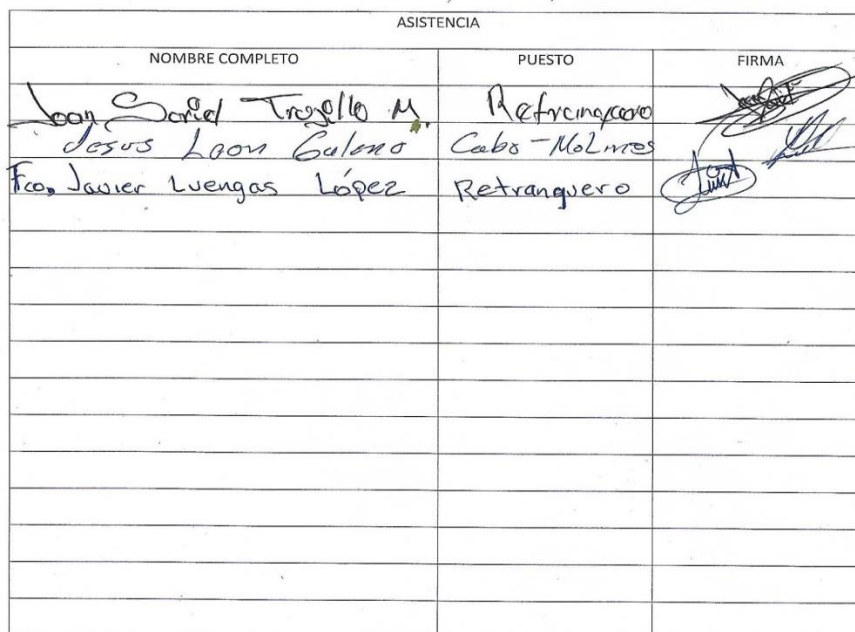 ASISTENCIA
NOMBRE COMPLETO PUESTO FIRMA
Joan Sariel Trujillo M. Retranquero
Jesus Leon Galeno Cabo-Molinos
Fco. Javier Luengas López Retranquero